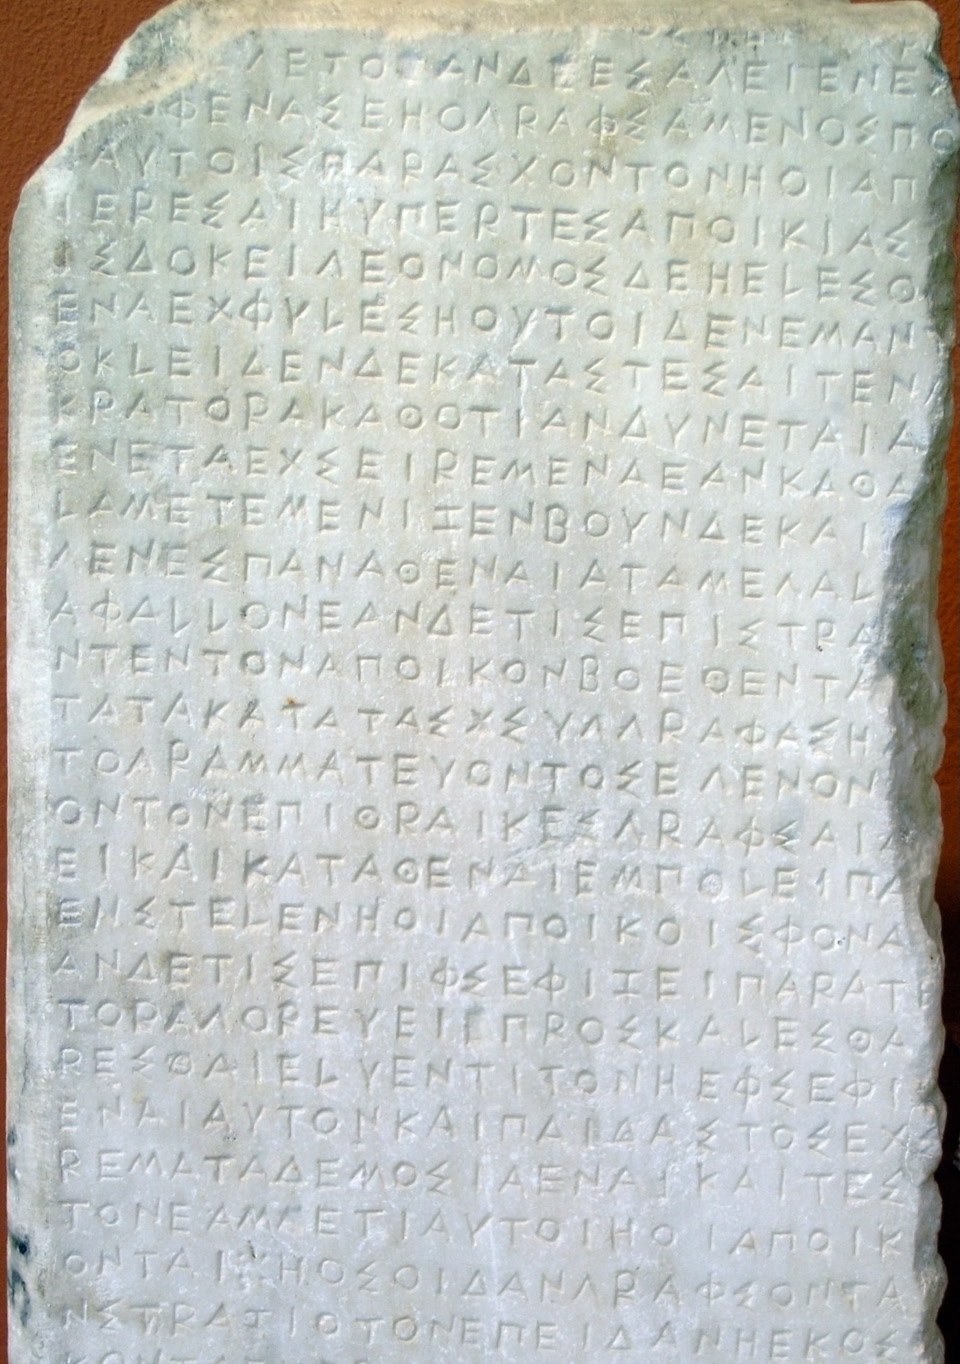 ΓΕΤΟΕΑΝΔΕΕΣΑΓΕΙΕΝΕΧ
ΟΦΕΝΑΣΕΗΟΓΡΑΦΣΑΜΕΝΟΣΠΟ
ΑΥΤΟΙΣΠΑΡΑΣΧΟΝΤΟΝΗΟΙΑΠ
ΙΕΡΕΣΑΙΗΥΠΕΡΤΕΣΑΠΟΙΚΙΑΣ
ΣΔΟΚΕΙΓΕΟΝΟΜΟΣΔΕΗΕΛΕΣΟ
ΕΝΑΕΧΦΥΛΕΣΗΟΥΤΟΙΔΕΝΕΜΑΝΤ
ΟΚΛΕΙΔΕΝΔΕΚΑΤΑΣΤΕΣΑΙΤΕΝΑ
ΚΡΑΤΟΡΑΚΑΘΟΤΙΑΝΔΥΝΕΤΑΙΑ
ΕΝΕΤΑΕΧΣΕΙΡΕΜΕΝΑΕΑΝΚΑΘΑ
ΛΑΜΕΤΕΜΕΝΙΖΕΝΒΟΥΝΔΕΚΑΙ
ΓΕΝΕΣΠΑΝΑΘΕΝΑΙΑΤΑΜΕΓΑΛ
ΑΦΑΛΛΟΝΕΑΝΔΕΤΙΣΕΠΙΣΤΡΑ
ΝΤΕΝΤΟΝΑΠΟΙΚΟΝΒΟΕΘΕΝΤΑ
ΤΑΤΑΚΑΤΑΤΑΣΧΣΥΓΓΡΑΦΑΣΗ
ΤΟΓΡΑΜΜΑΤΕΥΟΝΤΟΣΕΓΕΝΟΝ
ΟΝΤΟΝΕΠΙΘΡΑΙΚΕΣΓΡΑΦΣΑΙΔ
ΕΙΚΑΙΚΑΤΑΘΕΝΑΙΕΜΠΟΛΕΙΠΑ
ΕΝΣΤΕΛΕΝΗΟΙΑΠΟΙΚΟΙΣΦΟΝΑ
ΑΝΔΕΤΙΣΕΠΙΦΣΕΦΙΖΕΙΠΑΡΑΤΕ
ΤΟΡΑΓΟΡΕΥΕΙΕΠΡΟΣΚΑΛΕΣΘΑ
ΡΕΣΘΑΙΕΛΥΕΝΤΙΤΟΝΗΕΦΣΕΦΙ
ΕΝΑΙΑΥΤΟΝΚΑΙΠΑΙΔΑΣΤΟΣΕΧΣ
ΡΕΜΑΤΑΔΕΜΟΣΙΑΕΝΑΙΚΑΙΤΕΣ
ΤΟΝΕΑΜΜΕΤΙΑΥΤΟΙΗΟΙΑΠΟΙΚ
ΟΝΤΑΙΗΟΣΟΙΔΑΝΓΡΑΦΣΟΝΤΑ
ΝΣΤΡΑΤΙΟΤΟΝΕΠΕΙΔΑΝΗΕΚΟΣ